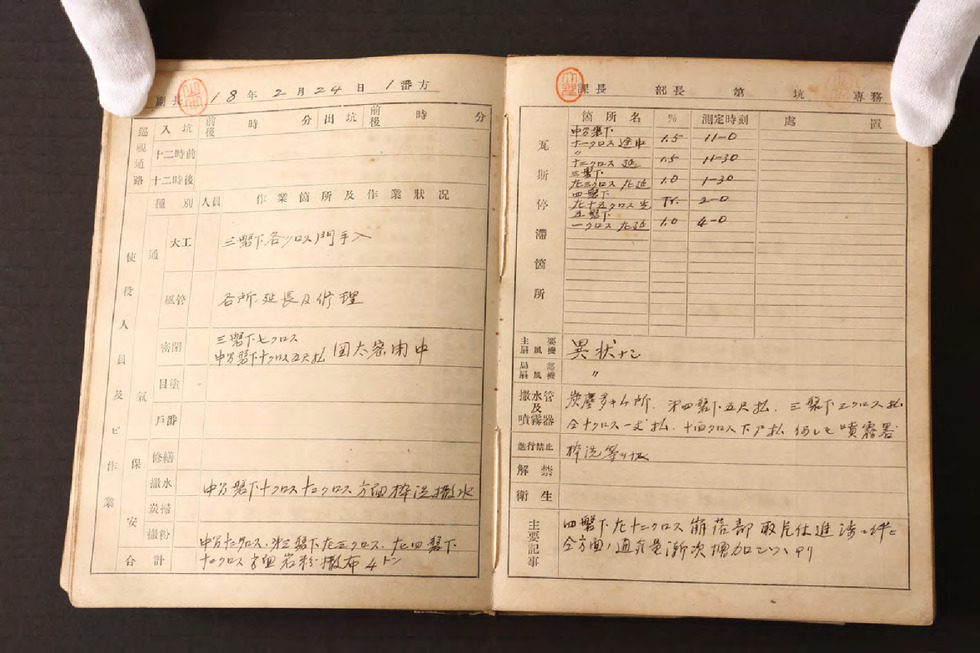 副長 18年2月24日1番方
巡視通路
入坑 前後 時 分 出坑 前後 時 分
十二時前
十二時後
使役人員及ビ作業
種別 人員 作業箇所及作業状況
通気
大工 三盤下各クロス門手入
風管 各所延長及修理
密閉 三盤下七クロス
中万盤下十クロス五尺払 密閉中
目塗
戸番
保安
修繕
撒水 中万盤下十クロス十二クロス方面枠洗撒水
炭掃
撒粉 下左三クロス、左四盤下
合計 十二クロス方面岩粉撒布4トン
課長 部長 第 坑 専務
瓦斯停滞箇所
箇所名 % 測定時刻 処置
中万盤下
十一クロス途中 1.5 11-0
〃
十二クロス延 1.5 11-30
三盤下
左三クロス左延 1.0 1-30
四盤下
左十五クロス Tr. 2-0
五盤下
一クロス左延 1.0 4-0
主要扇風機 異状ナシ
局部扇風機 〃
撒水管及噴霧器
炭塵多キ箇所、第四盤下五尺払、三盤下三クロス払
仝十クロス払、十四クロス下払 何レモ噴霧器
進行禁止 枠洗
解禁
衛生
主要記事
四盤下左十二クロス崩落部取片仕進渉ニ伴ヒ
仝方面ノ通気量漸次増加シツヽアリ